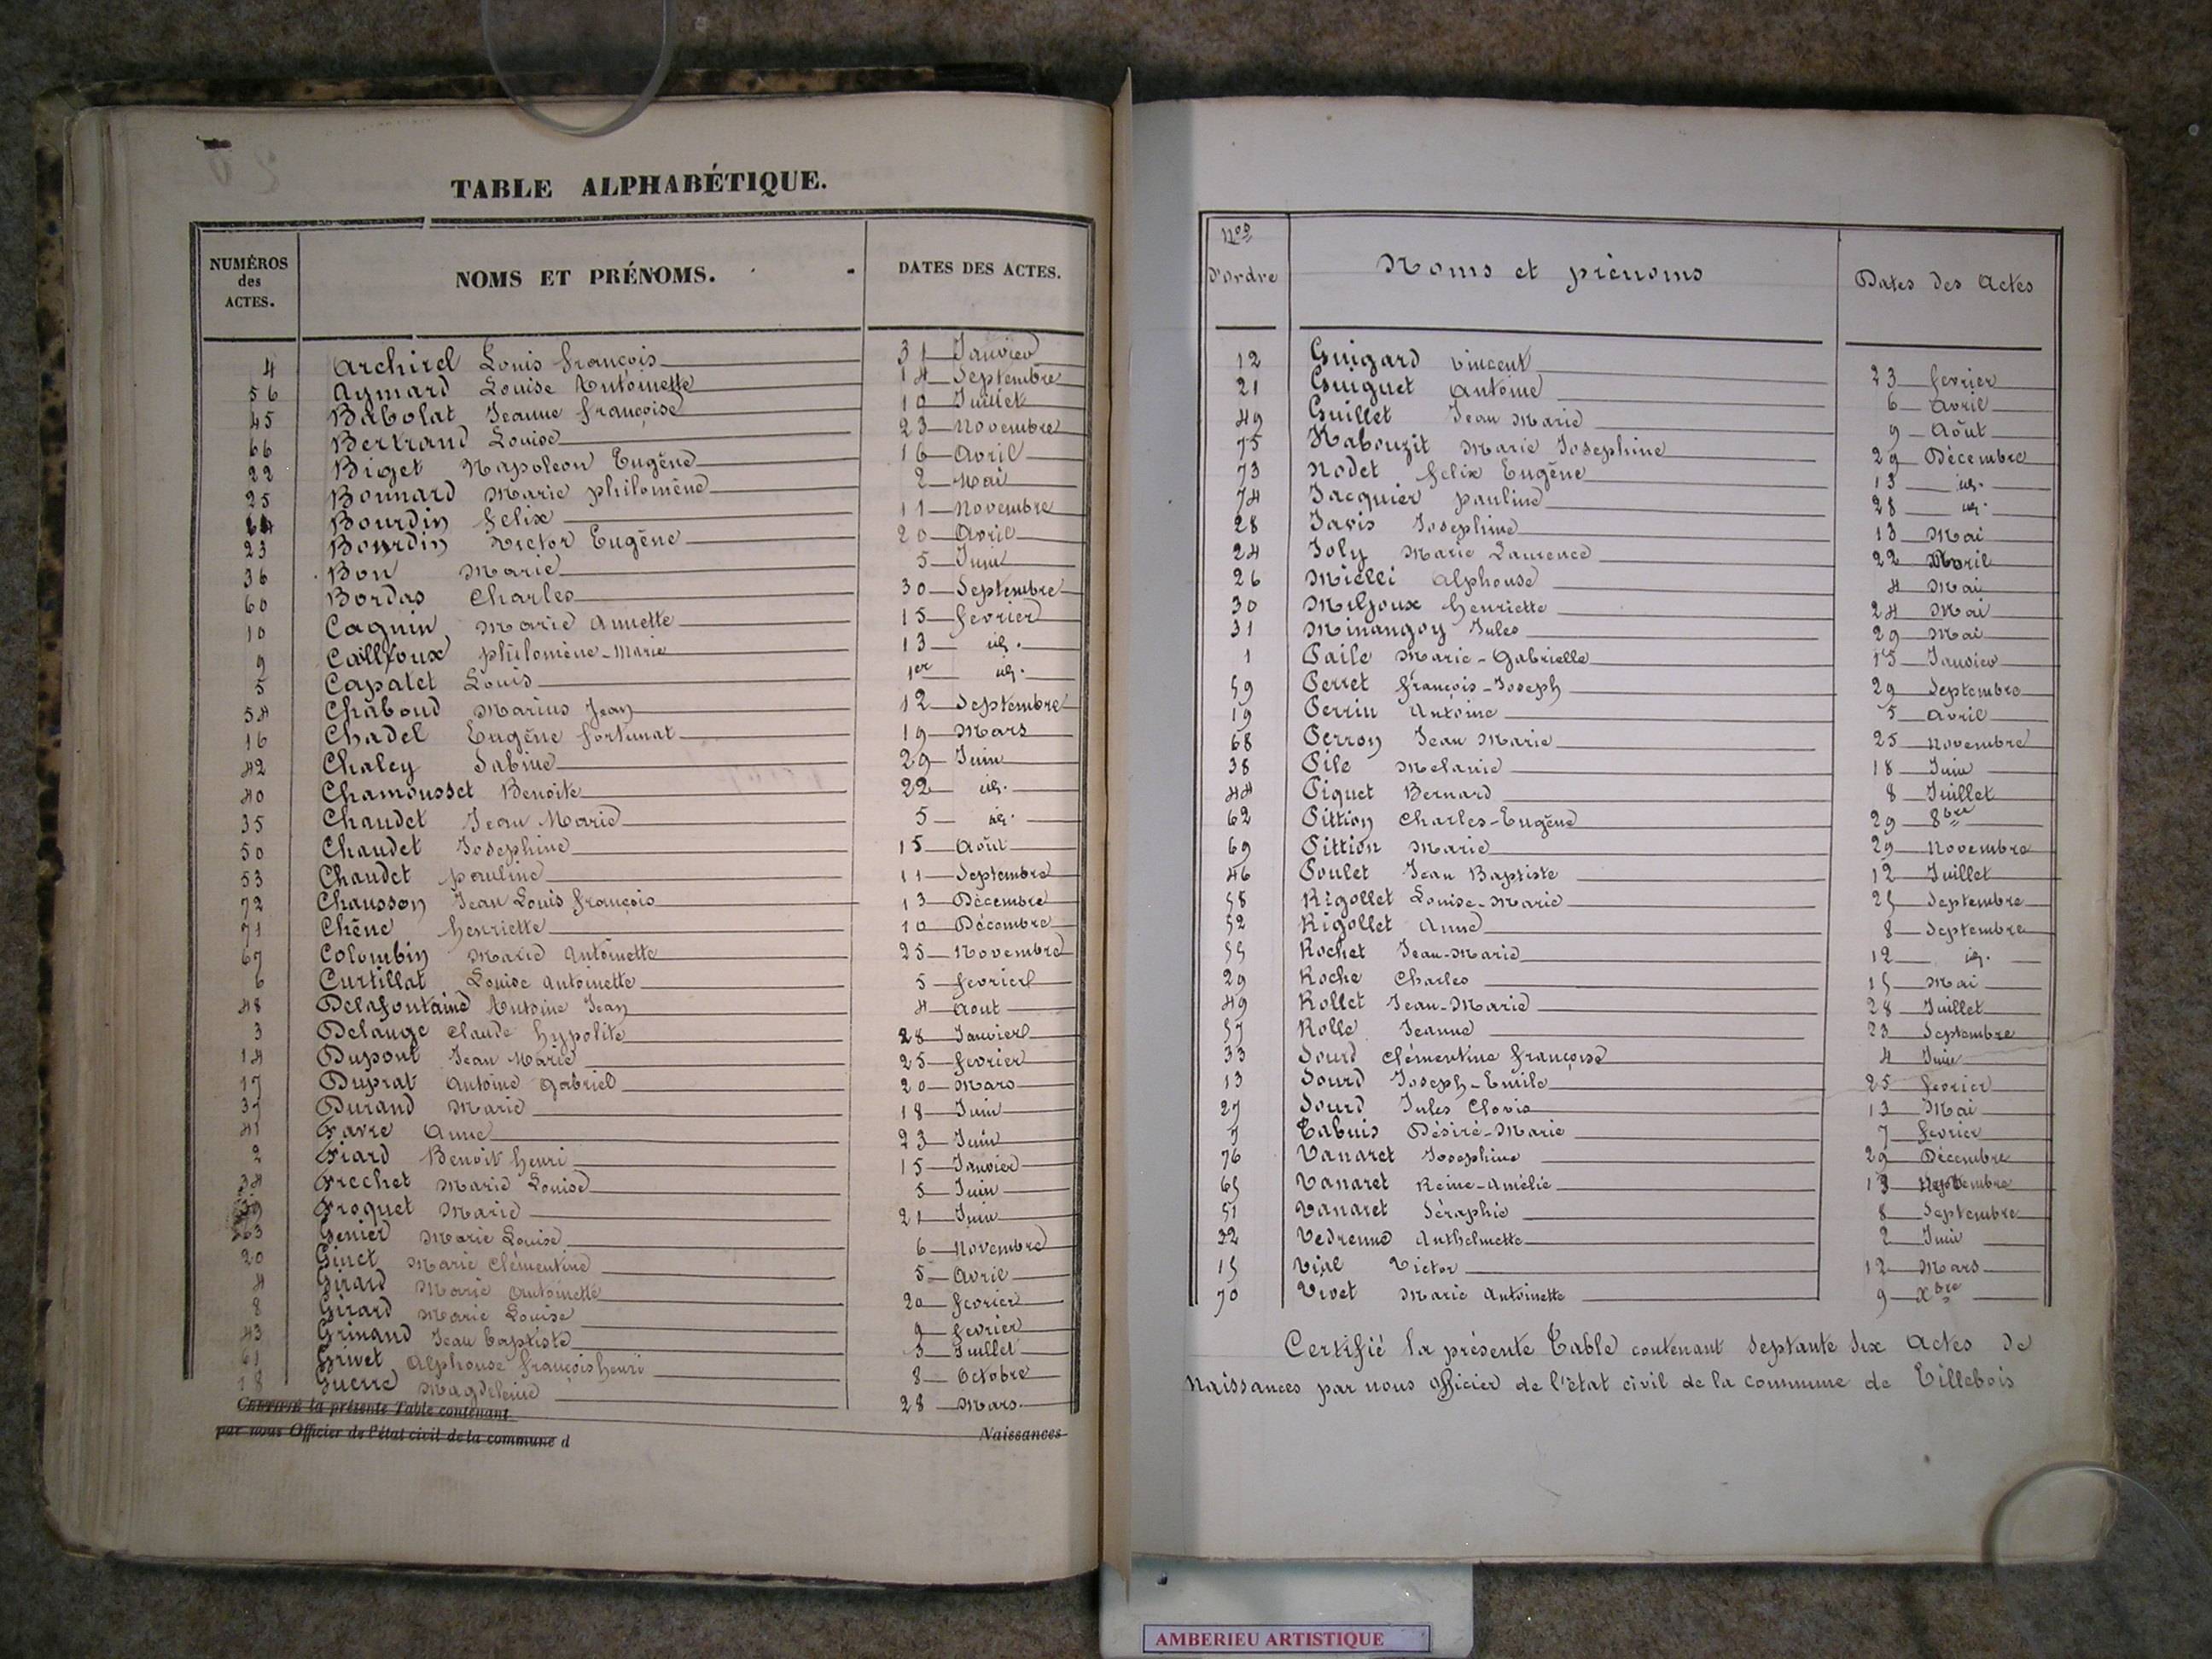 TABLE ALPHABÉTIQUE.
NUMÉROS des ACTES. NOMS ET PRÉNOMS. DATES DES ACTES.
4 Archirel Louis françois 31 Janvier
56 Aymard Louise Antoinette 14 Septembre
45 Babolat Jeanne françoise 10 Juillet
66 Bertrand Louise 23 Novembre
22 Biget Napoleon Eugêne 16 Avril
25 Bonnard Marie philomêne 2 Mai
64 Bourdin felix 11 Novembre
23 Bourdin Victor Eugêne 20 Avril
36 Bon Marie 5 Juin
60 Bordas Charles 30 Septembre
10 Cagnin Marie Annette 15 fevrier
9 Cailloux philomène-Marie 13 id.
5 Capatet Louis 1er id.
54 Chaboud Marius Jean 12 Septembre
16 Chadel Eugêne fortunat 19 Mars
42 Chaley Sabine 29 Juin
40 Chamousset Benoite 22 id.
35 Chaudet Jean Marie 5 id.
50 Chaudet Josephine 15 Août
53 Chaudet pauline 11 Septembre
72 Chausson Jean Louis françois 13 Décembre
71 Chêne henriette 10 Décembre
67 Colombin Marie Antoinette 25 Novembre
6 Curtillat Louise Antoinette 5 fevrier
48 Delafontaine Antoine Jean 4 Aout
3 Delauge Claude hypolite 28 Janvier
14 Dupont Jean Marie 25 fevrier
17 Duprat Antoine Gabriel 20 Mars
37 Durand Marie 18 Juin
41 Favre Anne 23 Juin
2 Fiard Benoit henri 15 Janvier
34 Frechet Marie Louise 5 Juin
39 Froquet Marie 21 Juin
63 Genier Marie Louise 6 Novembre
20 Ginet Marie Clémentine 5 Avril
Girard Marie Antoinette 20 fevrier
8 Girard Marie Louise 9 fevrier
43 Grinand Jean baptiste 3 Juillet
61 Grivet Alphonse françois henri 8 Octobre
18 Guerre Magdeleine 28 Mars
CERTIFIÉ la présente Table contenant Naissances
par nous Officier de l'état civil de la commune d
Nos d'ordre Noms et prénoms Dates des Actes
12 Guigard vincent 23 fevrier
21 Guiguet Antoine 6 Avril
49 Guillet Jean Marie 9 Août
75 Habouzit Marie Josephine 29 Décembre
73 Hodet felix Eugêne 13 id.
74 Jacquier pauline 28 id.
28 Javis Josephine 13 Mai
24 Joly Marie Laurence 22 Avril
26 Miellei Alphonse 4 Mai
30 Miljoux henriette 24 Mai
31 Minangoy Jules 29 Mai
1 Paile Marie-Gabrielle 15 Janvier
59 Perret françois-Joseph 29 Septembre
19 Perrin Antoine 5 Avril
68 Perron Jean Marie 25 Novembre
38 Pile Melanie 18 Juin
44 Piquet Bernard 8 Juillet
62 Pittion Charles-Eugêne 29 8bre
69 Pittion Marie 29 Novembre
46 Poulet Jean Baptiste 12 Juillet
58 Rigollet Louise-Marie 25 Septembre
52 Rigollet Anne 8 Septembre
55 Rochet Jean-Marie 12 id.
29 Roche Charles 15 Mai
49 Rollet Jean-Marie 28 Juillet
57 Rolle Jeanne 23 Septembre
33 Sourd Clémentine françoise 4 Juin
13 Sourd Joseph-Emile 25 fevrier
27 Sourd Jules Clovis 13 Mai
7 Tabuis Désiré-Marie 7 fevrier
76 Vanaret Josephine 29 Décembre
65 Vanaret Reine-Amélie 13
51 Vanaret Séraphie 8 Septembre
32 Vedrenne Anthelmette 2 Juin
15 Vial Victor 12 Mars
70 Vivet Marie Antoinette 9 Xbre
Certifié la présente Table contenant septante six actes de
Naissances par nous officier de l'état civil de la commune de Villebois
AMBERIEU ARTISTIQUE